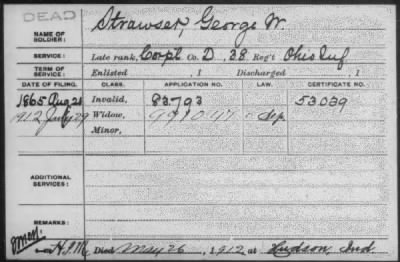 DEAD
Strawser, George W.
NAME OF SOLDIER:
SERVICE: Late rank, Corpl Co. D, 38 Reg't Ohio Inf
TERM OF SERVICE: Enlisted , 1 Discharged , 1
DATE OF FILING. CLASS. APPLICATION NO. LAW. CERTIFICATE NO.
1865 Aug 21 Invalid, 83,793 53039
1912 July 29 Widow, 991047
Minor,
ADDITIONAL SERVICES:
REMARKS:
Died May 26, 1912 at Hudson, Ind.